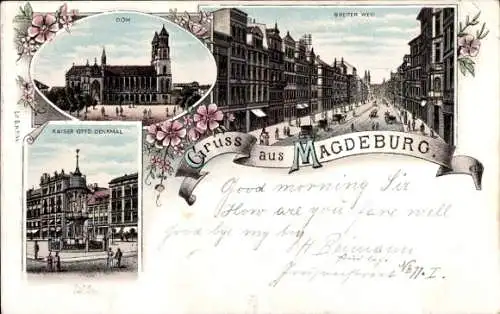 DOM
BREITER WEG
KAISER OTTO DENKMAL
Gruss aus MAGDEBURG.
Good morning Sir
How are you fare well
Good bye my boy
H Beimann
No 11. I.